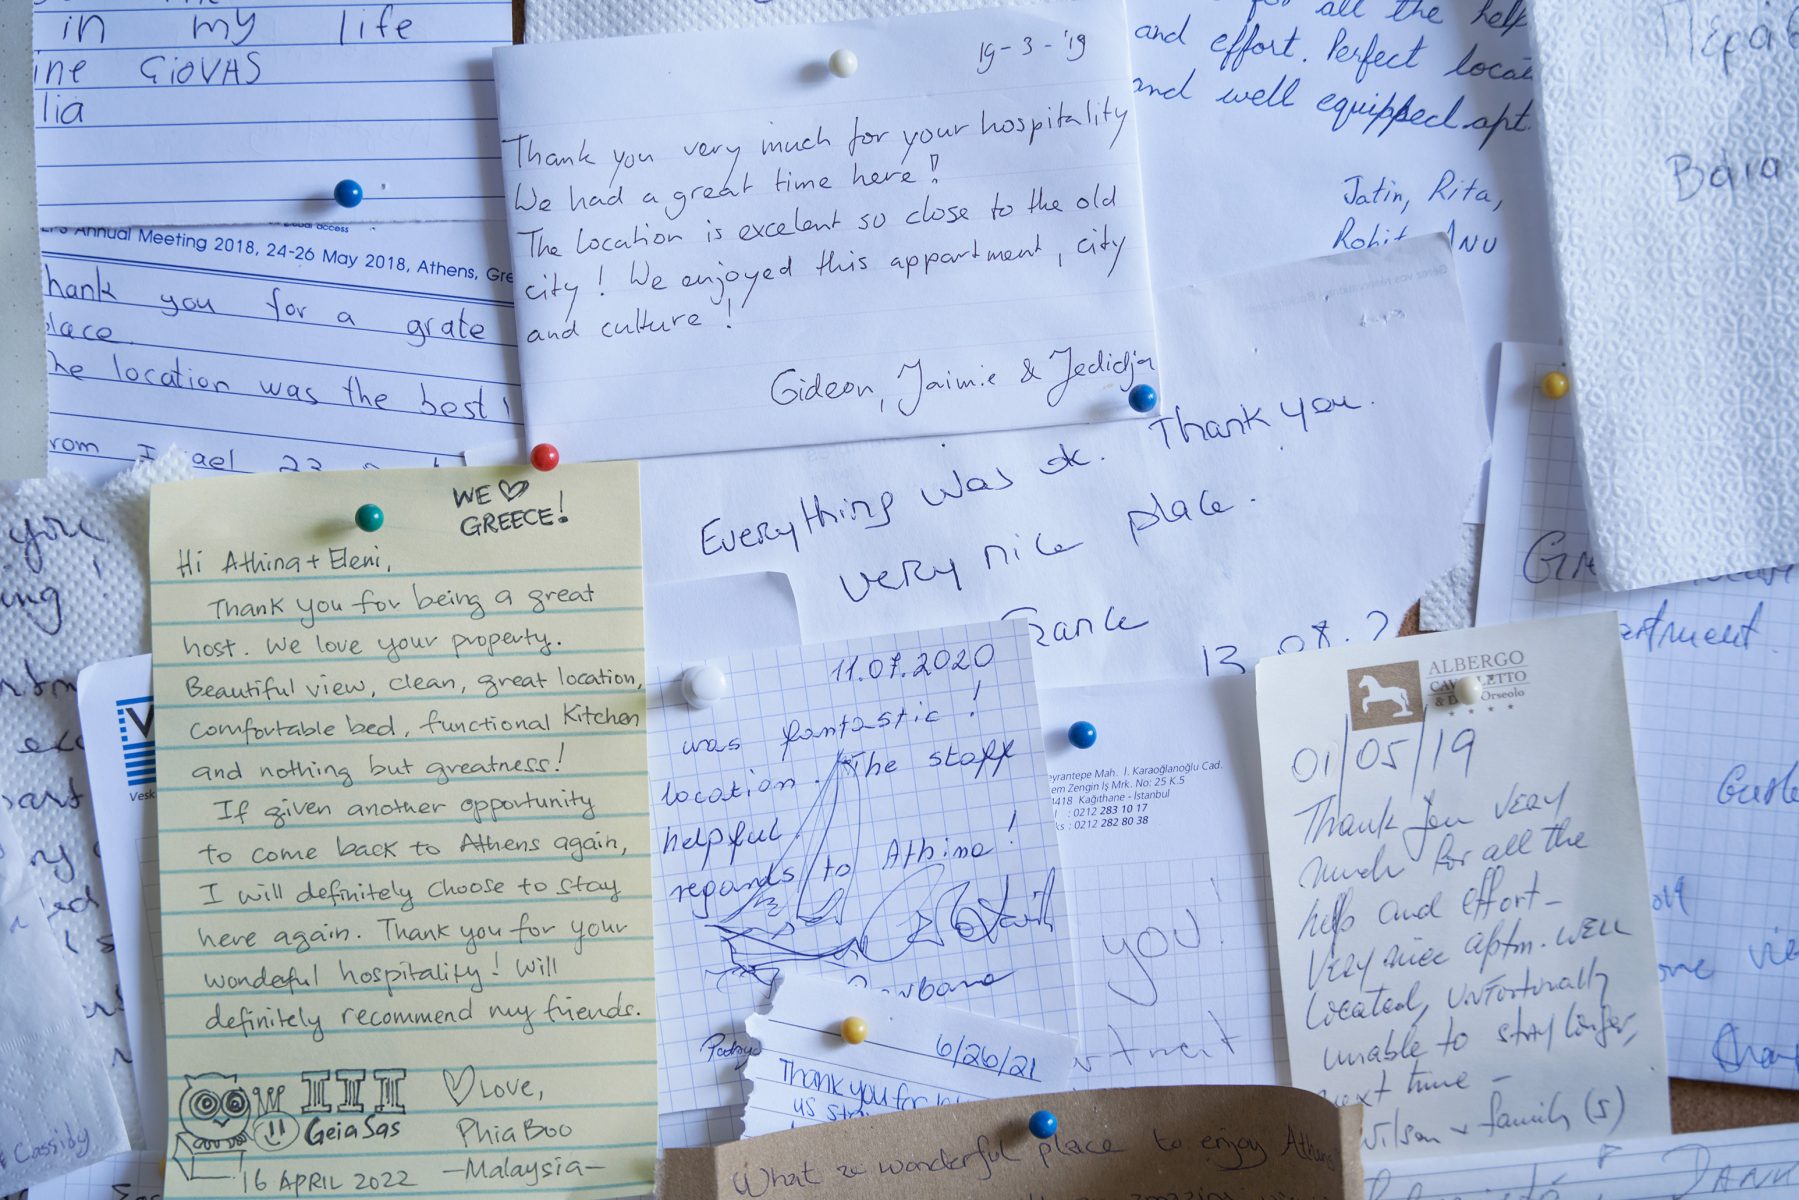 in my life
ine GiOVAS
lia
Annual Meeting 2018, 24-26 May 2018, Athens, Gre
hank you for a grate
lace
he location was the best!
rom I ael 23
19-3-'19
Thank you very much for your hospitality
We had a great time here!
The location is excelent so close to the old
city! We enjoyed this appartment, city
and culture!
Gideon, Jaimie & Jedidja
for all the help
and effort. Perfect locat
and well equipped apt.
Jatin, Rita,
Rohit ANU
Περαβ
Βαγα
Everything was ok. Thank you.
very nice place.
France
13 08.2
WE ♡
GREECE!
Hi Athina + Eleni,
Thank you for being a great
host. We love your property.
Beautiful view, clean, great location,
comfortable bed, functional Kitchen
and nothing but greatness!
If given another opportunity
to come back to Athens again,
I will definitely choose to stay
here again. Thank you for your
wonderful hospitality! Will
definitely recommend my friends.
Geia Sas
16 APRIL 2022
♡ Love,
Phia Boo
-Malaysia-
you
ing
Cassidy
V
Vesk
11.07.2020
was fantastic!
location. The staff
helpful
regards to Athina!
eyrantepe Mah. I. Karaoğlanoğlu Cad.
em Zengin İş Mrk. No: 25 K.5
418 Kağıthane - İstanbul
: 0212 283 10 17
ks : 0212 282 80 38
you!
rtment
6/26/21
Thank you for
us
What a wonderful place to enjoy Athens
ALBERGO
CAV LETTO
& D Orseolo
01/05/19
Thank you very
much for all the
help and effort-
Very nice aptm. well
located, unfortunally
unable to stay longer,
next time -
wilson & family (s)
Gre
artment.